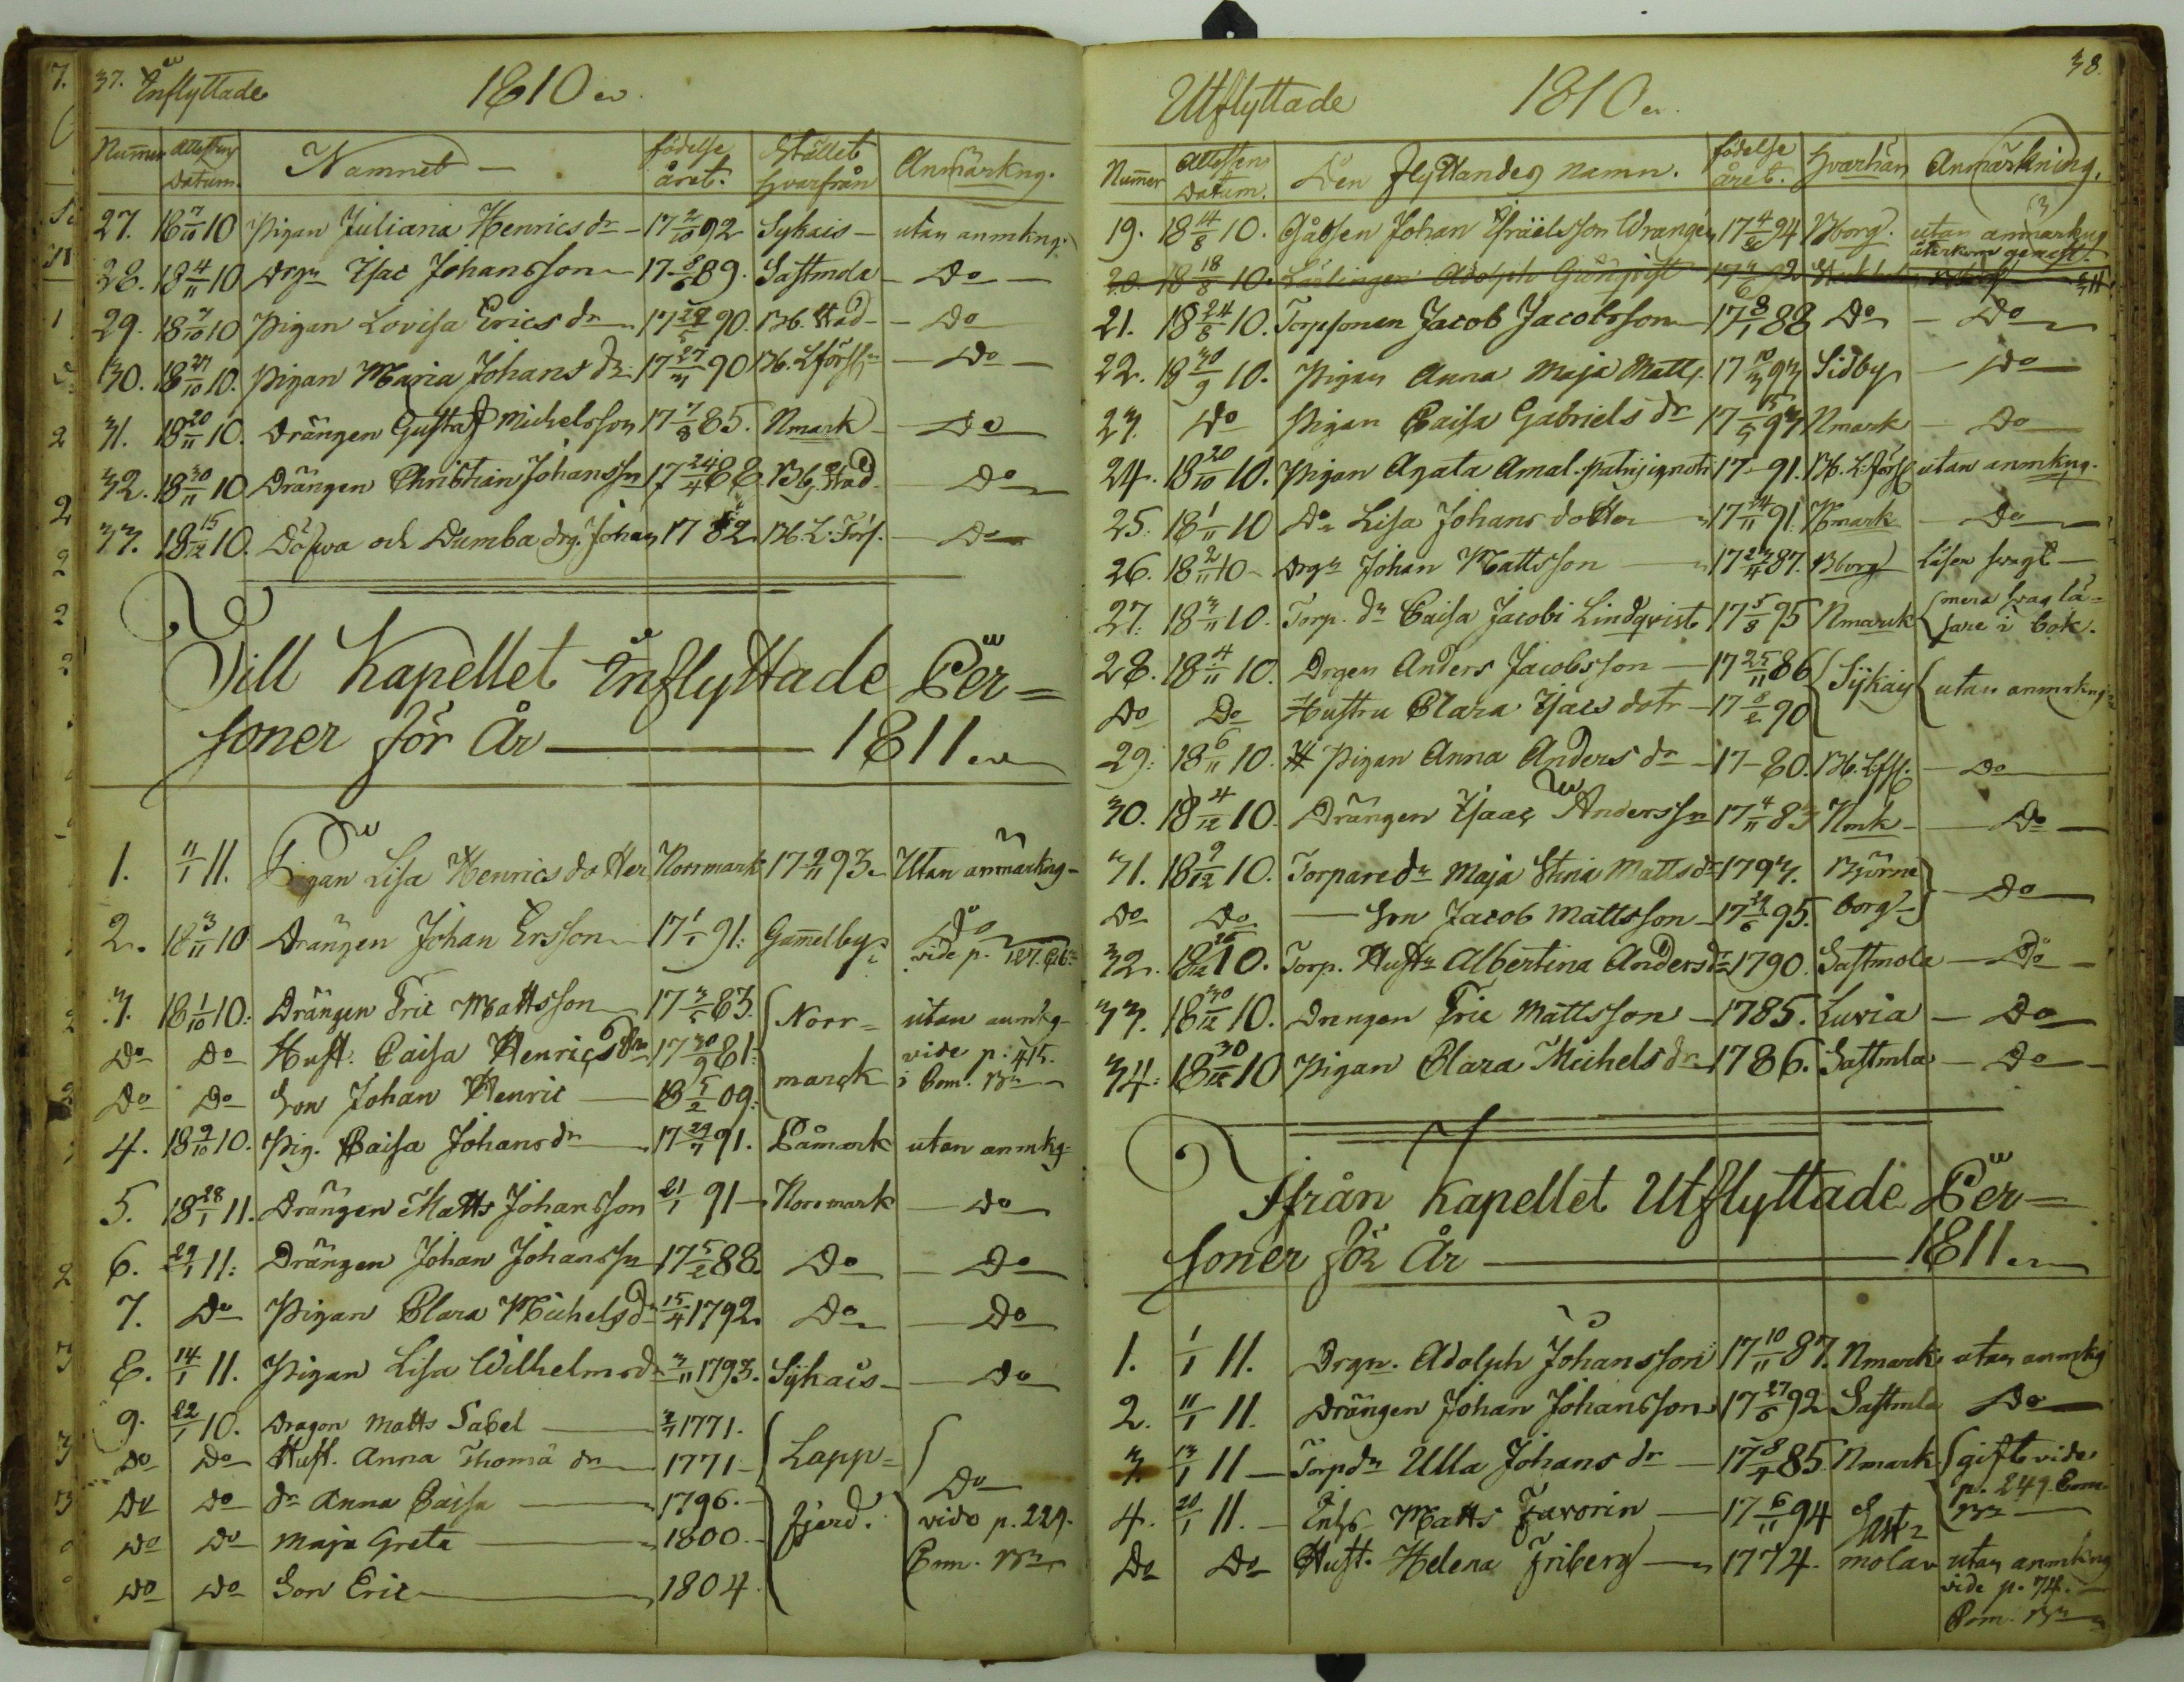 37. Inflyttade 1810
Nummer Attestens Datum. Namnet födelse året. Stället hvarifrån Anmärkng.
27. 18 7/10 10 Pigan Juliana Henrics dr 17 2/10 92 Sykais utan anmkng.
28. 18 4/11 10 Drgn Isac Johansson 17 8/6 89. Sastmola Do
29. 18 7/10 10 Pigan Lovisa Erics dr 17 90. B. Stad Do
30. 18 27/10 10. Pigan Maria Johans dr 17 27/3 90 B. Lförs. Do
31. 18 20/11 10. Drängen Gustaf Michelsson 17 7/8 85. Nmark Do
32. 18 30/11 10 Drängen Christian Johanssn 17 24/4 88. Bbg. Stad Do
33. 18 15/12 10. Döfwa och Dumba drg. Johan 1782 B. L. Förs. Do
Till Kapellet Inflyttade Per=
soner för År 1811
1. 11/1 11. Pigan Lisa Henrics dotter Norrmark 17 9/11 93. Utan anmärkng
2. 18 3/11 10 Drängen Johan Ersson 17 1/1 91. Gamelby Do
vide p. 127.
3. 18 1/10 10. Drängen Eric Mattsson 17 3/5 83. Norr= utan anmkg
Do Do Hust. Caisa Henrics dr 17 30/9 81. vide p. 415.
Do Do Son Johan Henric 18 5/2 09. marck i Com. Bn
4. 18 9/10 10. Pig. Caisa Johans dr 17 29/7 91. Påmark utan anmkg
5. 18 28/1 11. Drängen Matts Johansson 21/1 91 Norrmark Do
6. 29/1 11. Drängen Johan Johanssn 17 5/2 88. Do Do
7. Do Pigan Clara Michels dr 15/4 1792. Do Do
8. 14/1 11. Pigan Lisa Wilhelms dr 3/11 1793. Sykais Do
9. 22/1 10. Dragon Matts Sabel 1771.
Do Do Hust. Anna Thomä dr 1771 Lapp=
Do Do dr Anna Caisa 1796. Do
Do Do Maja Greta 1800. fjerd. vide p. 229.
Do Do Son Eric 1804. Com. Bn
38.
Utflyttade 1810
Numer Attestens Datum. Den flyttandes namn. födelse året. Hvarhän Anmärkning.
19. 18 14/8 10. Gåssen Johan Israelsson Wrangén 17 4/8 94 Bborg. utan anmärkng
återkom genast.
20. 18 18/8 10. Lärlingen Adolph
21. 18 24/8 10. Torpsonen Jacob Jacobsson 17 8/1 88 Do Do
22. 18 30/9 10. Pigan Anna Maja Matts. 17 10/3 93 Sidby Do
23. Do Pigan Caisa Gabriels dr 17 15/5 93 Nmark Do
24. 18 20/10 10. Pigan Agata Amal. patris ignoti 17 91. B. L. förs utan anmkng.
25. 18 1/11 10 Do Lisa Johans dotter 17 24/11 91. Nmark Do
26. 18 2/11 10 Drgn Johan Mattsson 17 23/4 87. Bborg läsen swagt
27. 18 3/11 10. Torp. dr Caisa Jacobi Lindqvist 17 5/8 95 Nmark mera swag lä=
sare i bok.
28. 18 4/11 10. Drgen Anders Jacobsson 17 25/11 86 Sykais utan anmrkng
Do Do Hustru Clara Isacs dotr 17 8/2 90
29. 18 6/11 10. Pigan Anna Anders dr 17 80. B. Lfs. Do
30. 18 4/12 10. Drängen Isaac Anderssn 17 4/11 83 Nmk Do
31. 18 9/12 10. Torpare dr Maja Stina Matts dr 1793. Björne Do
Do Do Son Jacob Mattsson 17 24/6 95. borg
32. 18 10. Torp. Hustr Albertina Anders dr 1790. Sastmola Do
33. 18 30/12 10. Drngen Eric Mattsson 1785. Luvia Do
34. 18 30/12 10 Pigan Clara Michels dr 1786. Sastmla Do
Ifrån Kapellet Utflyttade Per=
soner för År 1811
1. 1/1 11. Drgn. Adolph Johansson 17 10/11 87. Nmark utan anmkg
2. 11/1 11. Drängen Johan Johansson 17 27/6 92 Sastmla Do
3. 13/1 11 Torp dr Ulla Johans dr 17 8/4 85. Nmark gift vide
p. 249. Com.
4. 20/1 11. Matts Favorin 17 6/11 94 Sast= Bn
Do Do Hust. Helena Friberg 1774. mola utan anmkng
vide p. 74.
Com. Bn